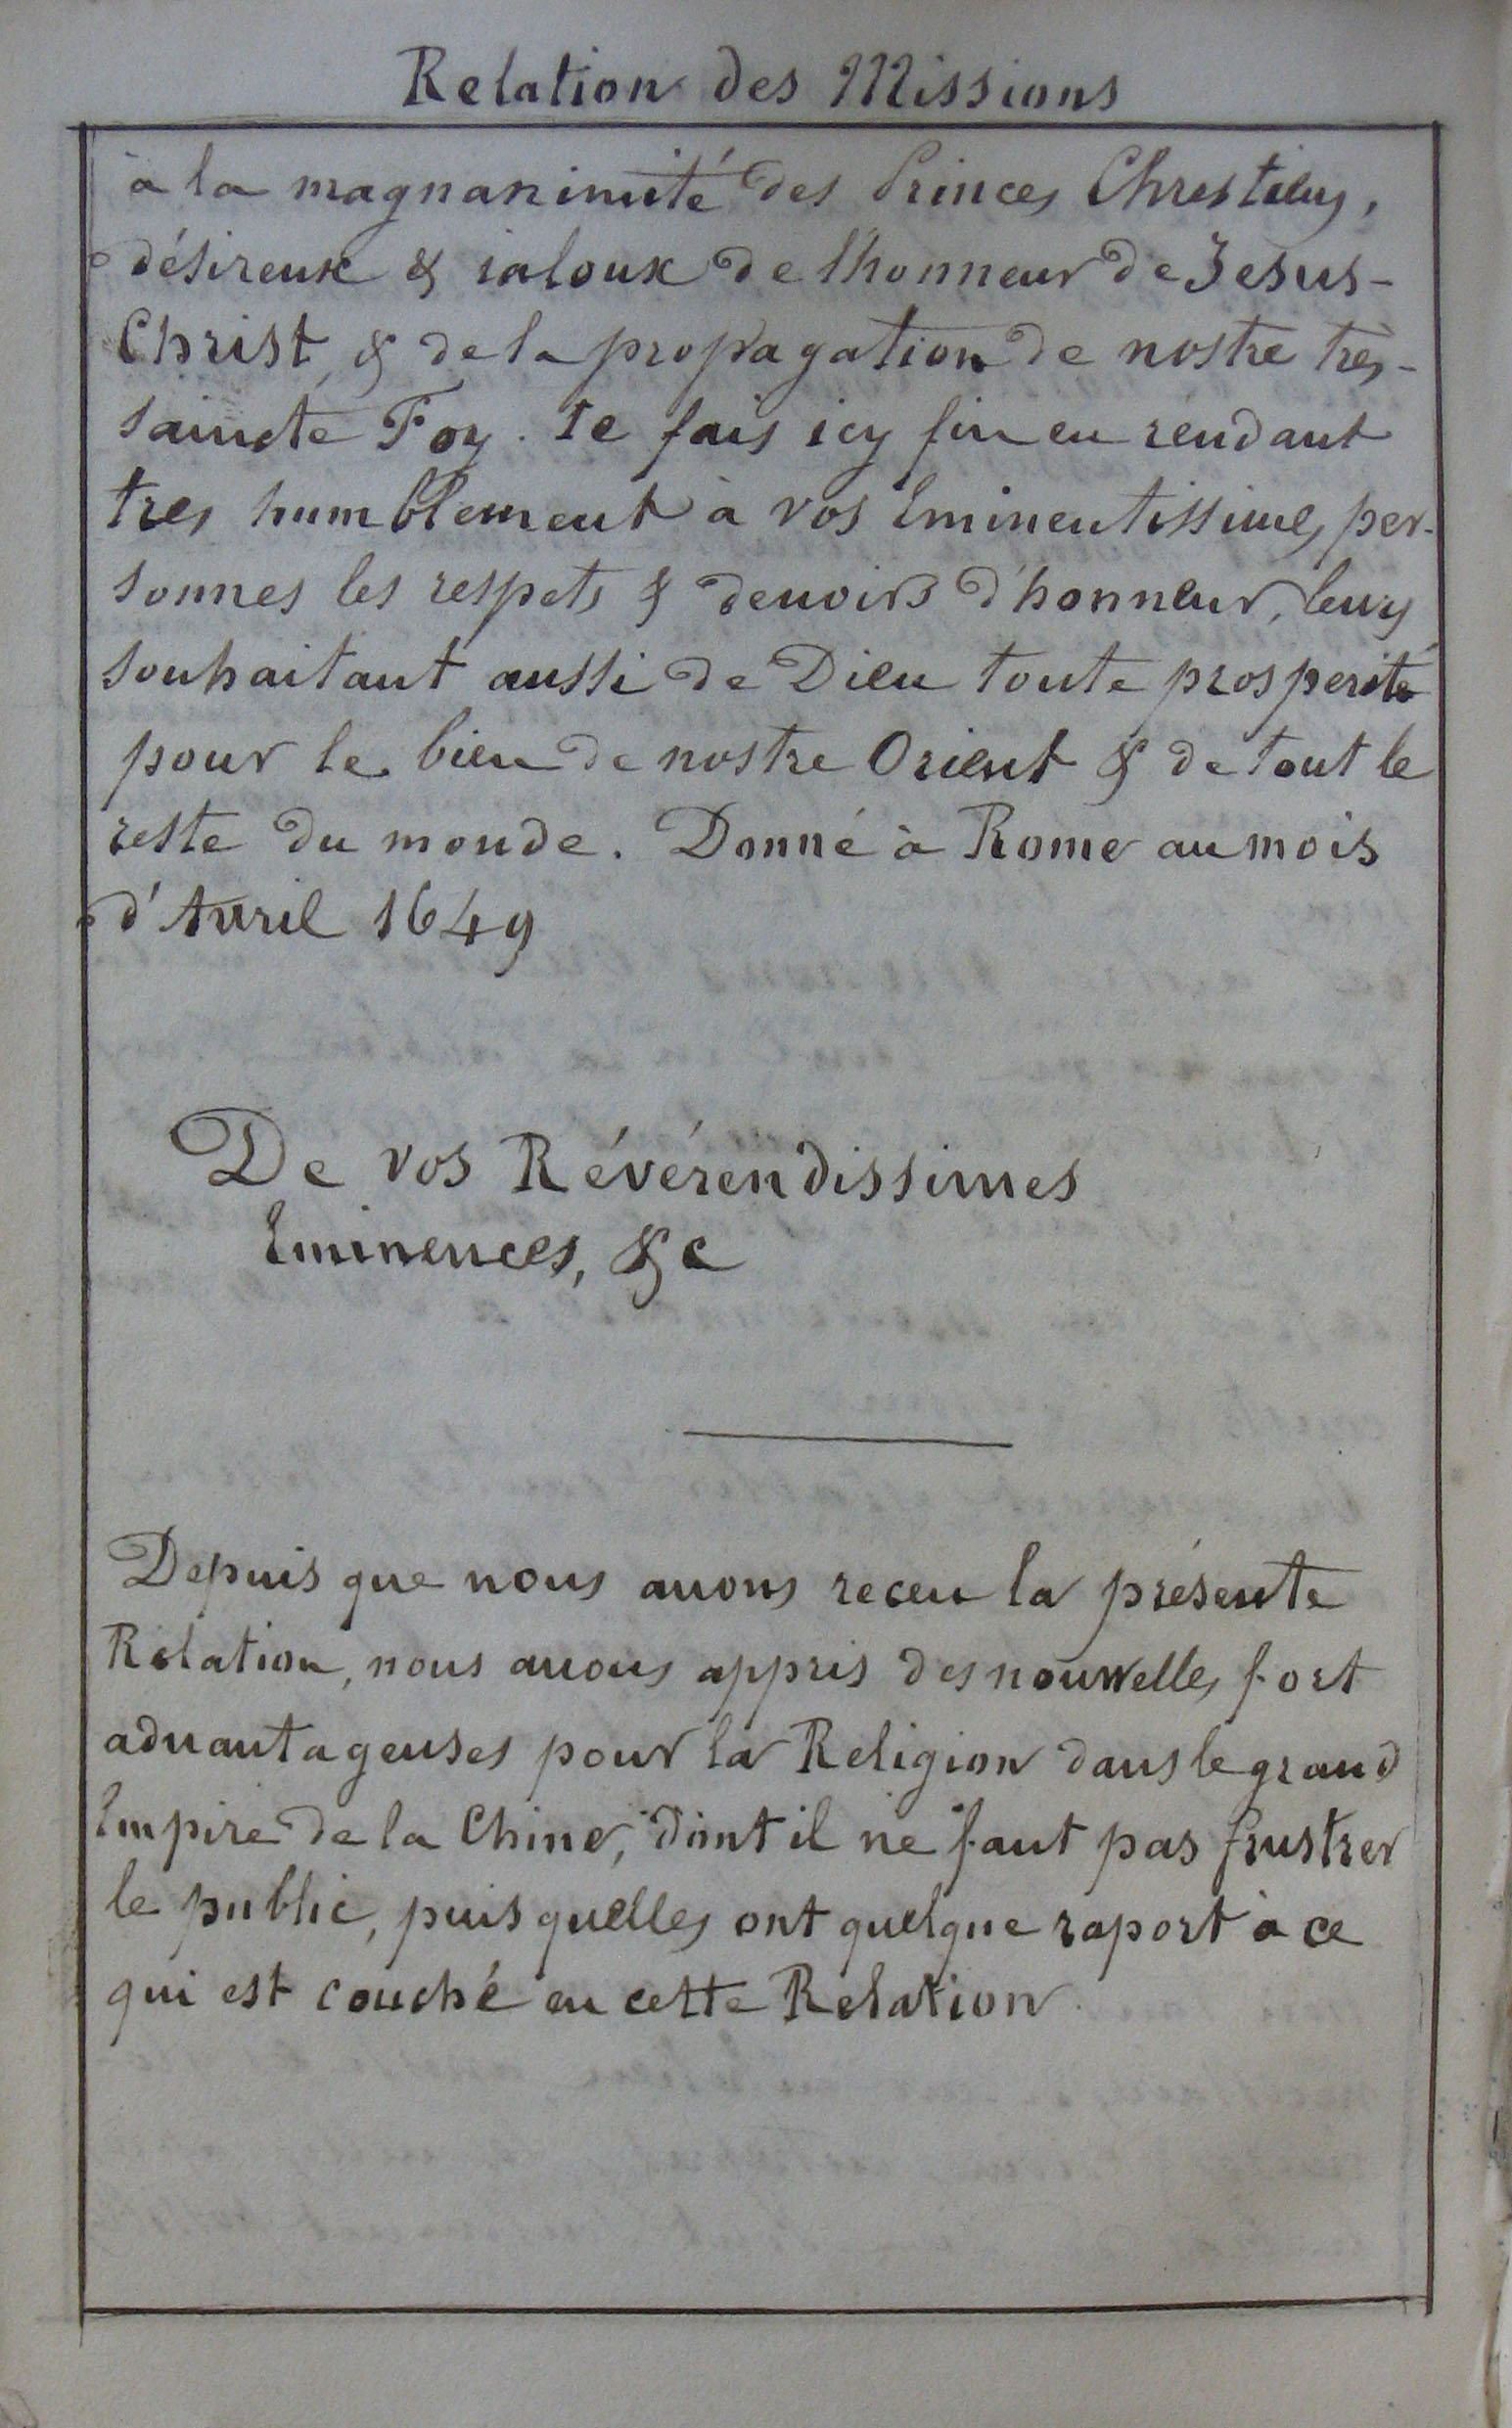 Relation des Missions
à la magnanimité des Princes Chrestiens,
désireux & ialoux de lhonneur de Jesus-
Christ, & de la propagation de nostre très-
saincte Foy. Ie fais icy fin en rendant
tres humblement à vos Eminentissimes per-
sonnes les respets & deuoirs d'honneur, leurs
souhaitant aussi de Dieu toute prosperité
pour le bien de nostre Orient & de tout le
reste du monde. Donné à Rome au mois
d'Auril 1649
De vos Révérendissimes
Eminences, &c
Depuis que nous auons receu la présente
Relation, nous auons appris des nouvelles fort
aduantageuses pour la Religion dans le grand
Empire de la Chine, dont il ne faut pas frustrer
le public, puis quelles ont quelque raport à ce
qui est couché en cette Relation.